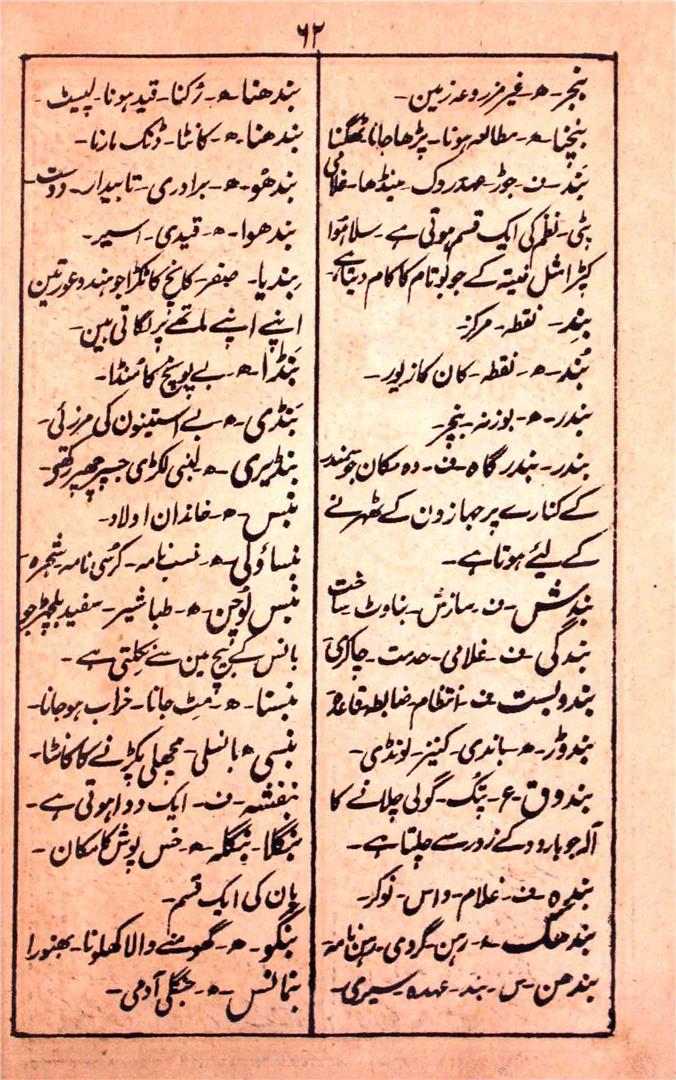 ۶۲
بنجر۔ ھ۔ غیر مزروعہ زمین۔
بنچنا۔ ھ۔ مطالعہ ہونا۔ پڑھا جانا ٹھگنا
بَند۔ ف۔ جوڑ۔ عہد روک۔ مینڈھا۔ غلامی
پٹی۔ نظم کی ایک قسم ہوتی ہے۔ سلا ہوا
کپڑا مثل فیتہ کے جو بوتام کا کام دیتا ہے،
بِند۔ نقطہ۔ مرکز۔
بُند۔ ھ۔ نقطہ۔ کان کا زیور۔
بندر۔ ھ۔ بوزنہ۔
بندر۔ بندر گاہ۔ ف۔ وہ مکان جو سمندر
کے کنارے پر جہازون کے ٹھہرنے
کے لیئے ہوتا ہے۔
بندش۔ ف۔ سازش۔ بناوٹ ساخت
بندگی۔ ف۔ غلامی۔ خدمت۔ چاکری
بندوبست۔ ف۔ انتظام۔ ضابطہ قاعدہ
بندوڑ۔ ھ۔ باندی۔ کنیز۔ لونڈی۔
بندوق۔ ع۔ گولی چلانے کا
آلہ جو بارود کے زور سے چلتا ہے۔
بندہ۔ ف۔ غلام۔ داس۔ نوکر۔
بندھک۔ ھ۔ رہن۔ گردی۔ رہن نامہ
بندھن۔ س۔ بند۔ عہدہ۔
بندھنا۔ ھ۔ رُکنا۔ قید ہونا۔ لپیٹ۔
بندھنا۔ ھ۔ کانٹا۔ ڈنک مارنا۔
بندھُو۔ ھ۔ برادری۔ تابیدار۔ دوست۔
بندھوا۔ ھ۔ قیدی۔ اسیر۔
بِندیا۔ کانچ کا ٹکڑا جو ہندو عورتین
اپنے اپنے ماتھے پر لگاتی ہین۔
بَنڈا۔ ھ۔ بے پونچ کا سنڈا۔
بَنڈی۔ ھ۔ بے استینون کی مرزئی۔
بنڈیری۔ ھ۔ لبنی لکڑی جسپر چھپر رکھتے
بنس۔ ھ۔ خاندان اولاد۔
بنساؤلی۔ ھ۔ نسب نامہ۔ کرسی نامہ شجرہ۔
بنس لوچن۔ ھ۔ طباشیر۔ سفید چیز جو
بانس کے بیچ مین سے نکلتی ہے۔
بنستا۔ ھ۔ مِٹ جانا۔ خراب ہوجانا۔
بنسی۔ ھ۔ بانسلی۔ مچھلی پکڑنے کا کانٹا۔
بنفشہ۔ ف۔ ایک دوا ہوتی ہے۔
بنگلا۔ بنگلہ۔ ھ۔ خس پوش کا مکان۔
پان کی ایک قسم۔
بنگو۔ ھ۔ گھومنے والا کھلونا۔ بھنورا
بنمانس۔ ھ۔ جنگلی آدمی۔